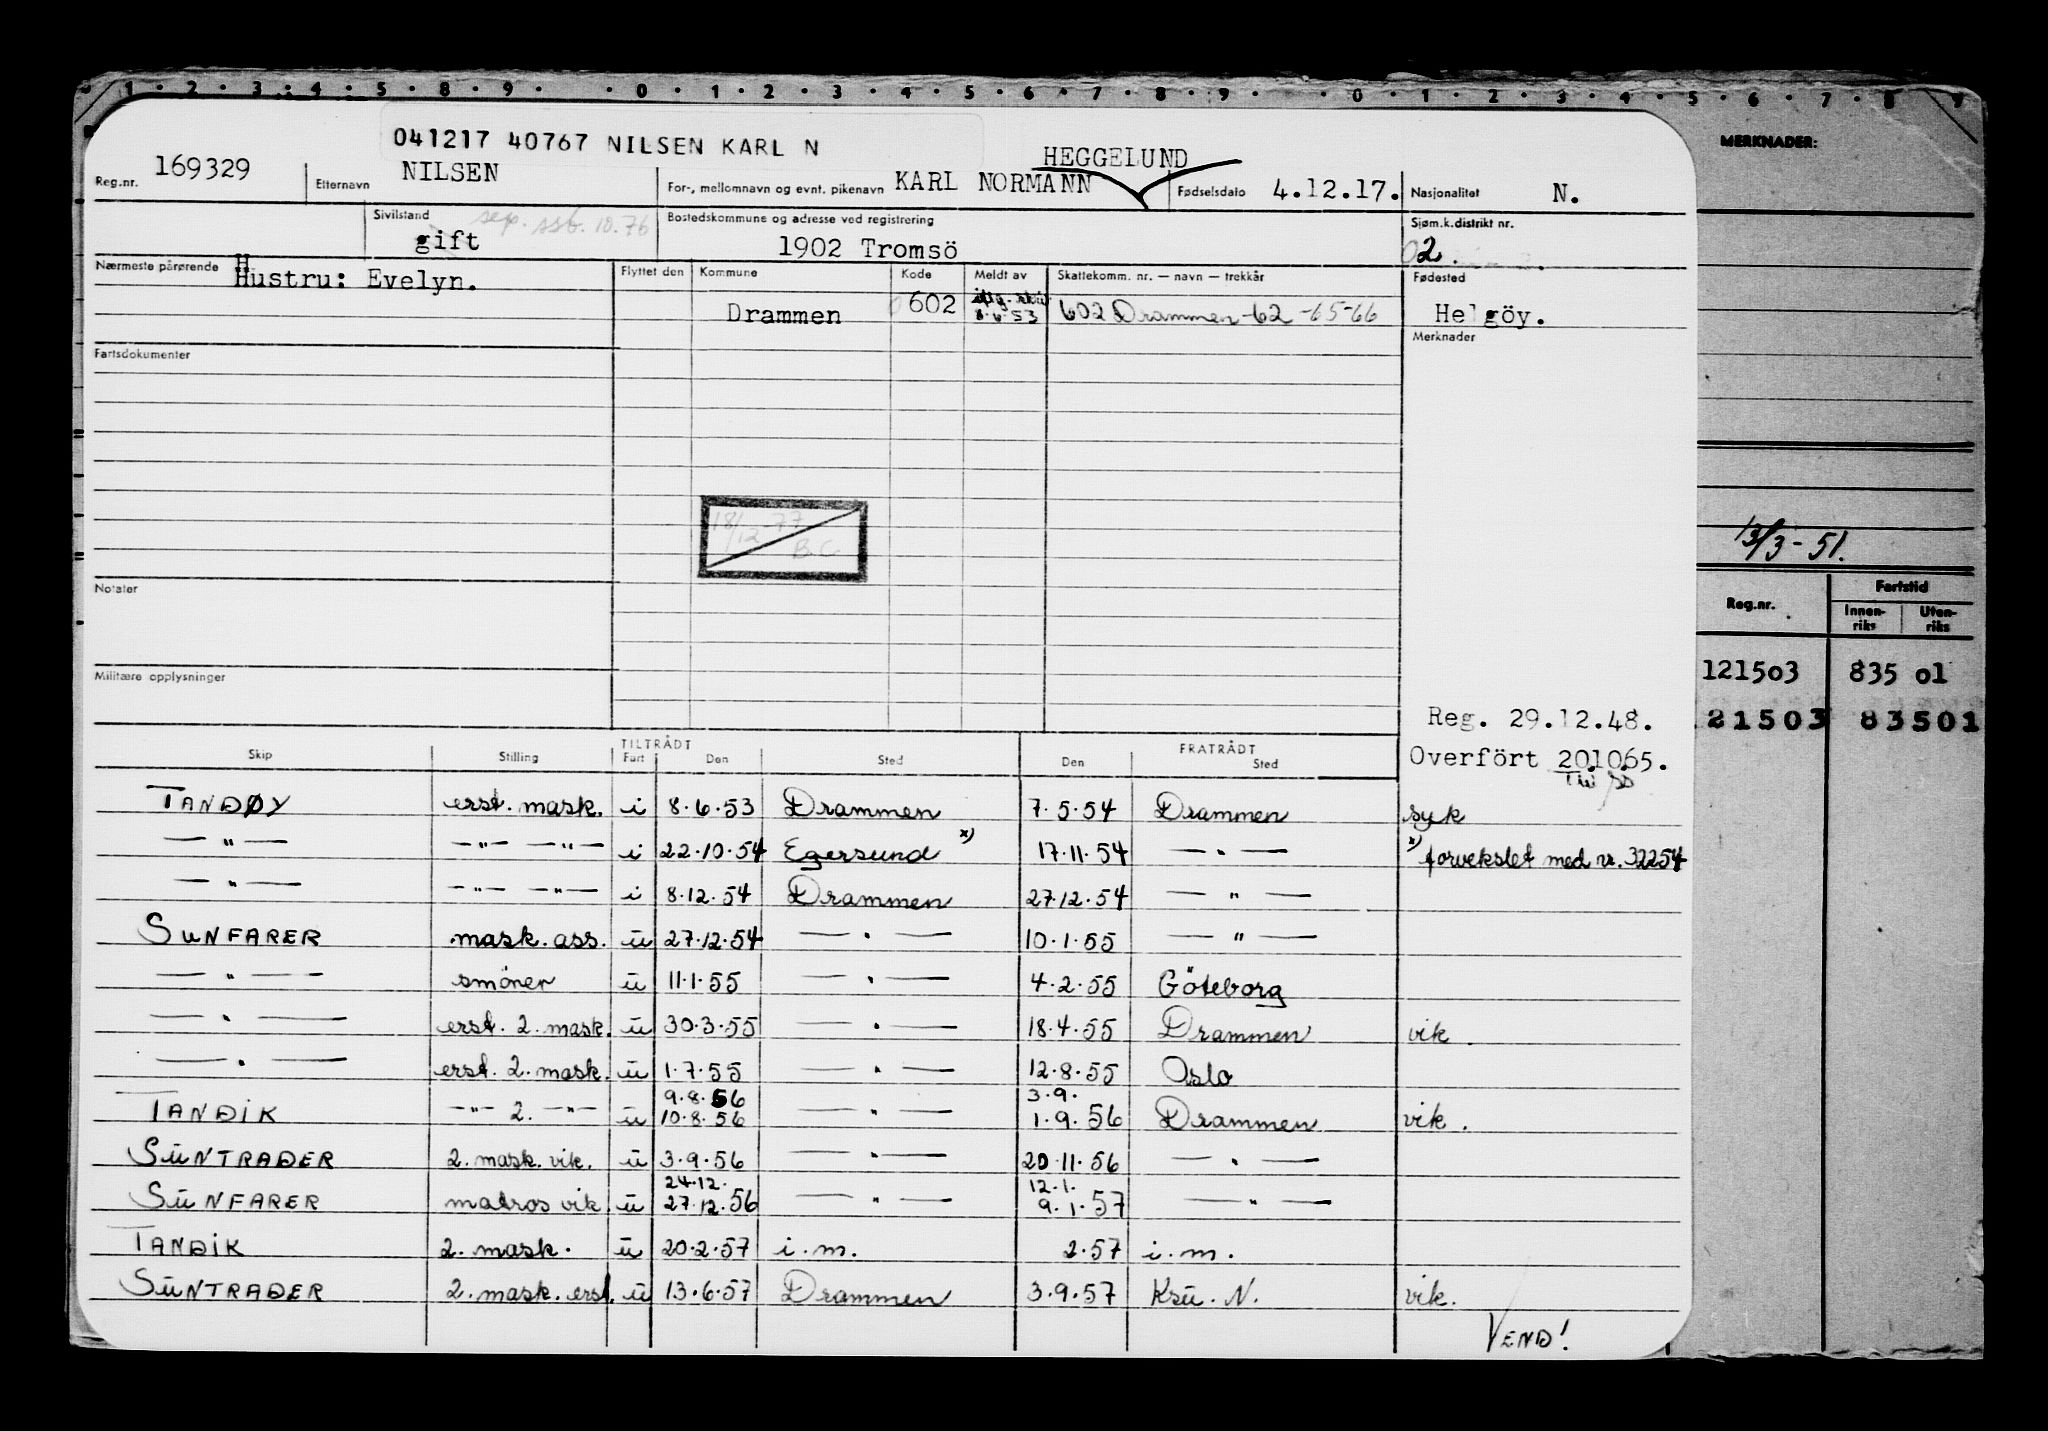 1 · 2 · 3 · 4 · 5 · 8 · 9 · · 0 · 1 · 2 · 3 · 4 · 5 · 6 · 7 · 8 · 9 · · 0 · 1 · 2 · 3 · 4 · 5 · 6 · 7 · 8 · 9
041217 40767 NILSEN KARL N
HEGGELUND
Reg.nr. 169329 Etternavn NILSEN For-, mellomnavn og evnt. pikenavn KARL NORMANN Fødselsdato 4.12.17. Nasjonalitet N.
Sivilstand sep. ssb. 10.76 Bostedskommune og adresse ved registrering Sjøm.k.distrikt nr.
gift 1902 Tromsö 02.
Nærmeste pårørende Flyttet den Kommune Kode Meldt av Skattekomm. nr. — navn — trekkår Fødested
Hustru: Evelyn. Drammen 0602 8.6.53 602 Drammen-62-65-66 Helgöy.
Fartsdokumenter Merknader
18/12-77
B.C
Notater
Militære opplysninger
Reg. 29.12.48.
Overfört 201065.
TILTRÅDT FRATRÅDT
Skip Stilling Fart Den Sted Den Sted
TANDØY erst. mask. i 8.6.53 Drammen 7.5.54 Drammen syk
—"— —"— —"— i 22.10.54 Egersund x) 17.11.54 —"— x) forvekslet med nr. 32254
—"— —"— —"— i 8.12.54 Drammen 27.12.54 —"—
SUNFARER mask. ass. u 27.12.54 —"— 10.1.55 —"—
—"— smörer u 11.1.55 —"— 4.2.55 Göteborg
—"— erst. 2. mask. u 30.3.55 —"— 18.4.55 Drammen vik.
—"— erst. 2. mask. u 1.7.55 —"— 12.8.55 Oslo
9.8.56 3.9.
TANDIK —"— 2. —"— u 10.8.56 —"— 1.9.56 Drammen vik.
SUNTRADER 2. mask. vik. u 3.9.56 —"— 20.11.56 —"—
24.12. 12.1.
SUNFARER matros vik u 27.12.56 —"— 9.1.57 —"—
TANDIK 2. mask. u 20.2.57 i.m. 2.57 i.m.
SUNTRADER 2. mask. erst. u 13.6.57 Drammen 3.9.57 Krsu. N. vik.
VEND!
MERKNADER:
13/3-51.
Reg.nr. Fartstid
Innen-riks Uten-riks
121503 835 01
21503 83501